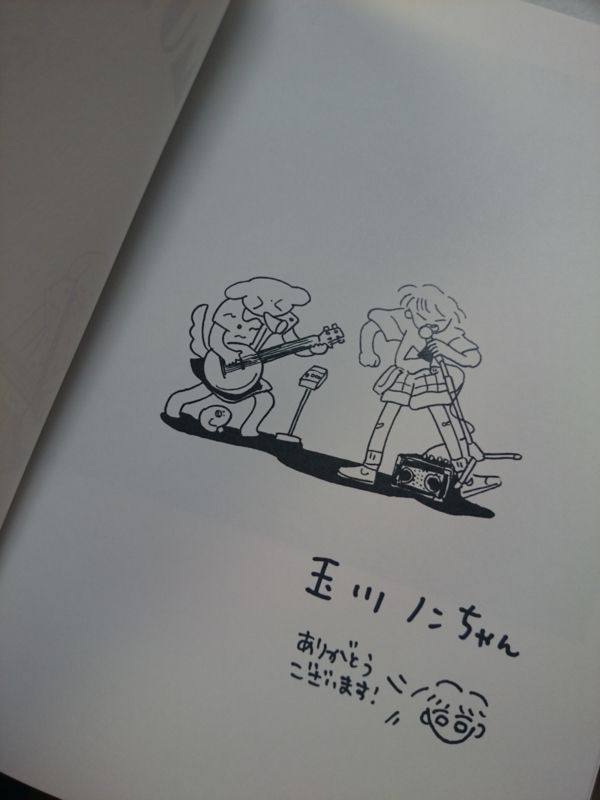 玉川ノンちゃん
ありがとう
ございます!